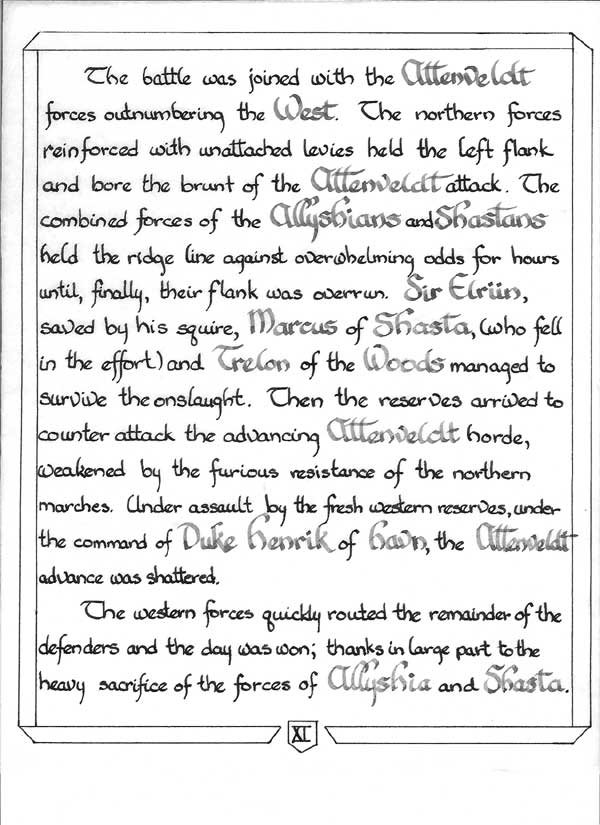 The battle was joined with the Attenveldt
forces outnumbering the West. The northern forces
reinforced with unattached levies held the left flank
and bore the brunt of the Attenveldt attack. The
combined forces of the Allyshians and Shastans
held the ridge line against overwhelming odds for hours
until, finally, their flank was overrun. Sir Elriin,
saved by his squire, Marcus of Shasta, (who fell
in the effort) and Trelon of the Woods managed to
survive the onslaught. Then the reserves arrived to
counter attack the advancing Attenveldt horde,
weakened by the furious resistance of the northern
marches. Under assault by the fresh western reserves, under
the command of Duke Henrik of Havn, the Attenveldt
advance was shattered.
The western forces quickly routed the remainder of the
defenders and the day was won; thanks in large part to the
heavy sacrifice of the forces of Allyshia and Shasta.
XI